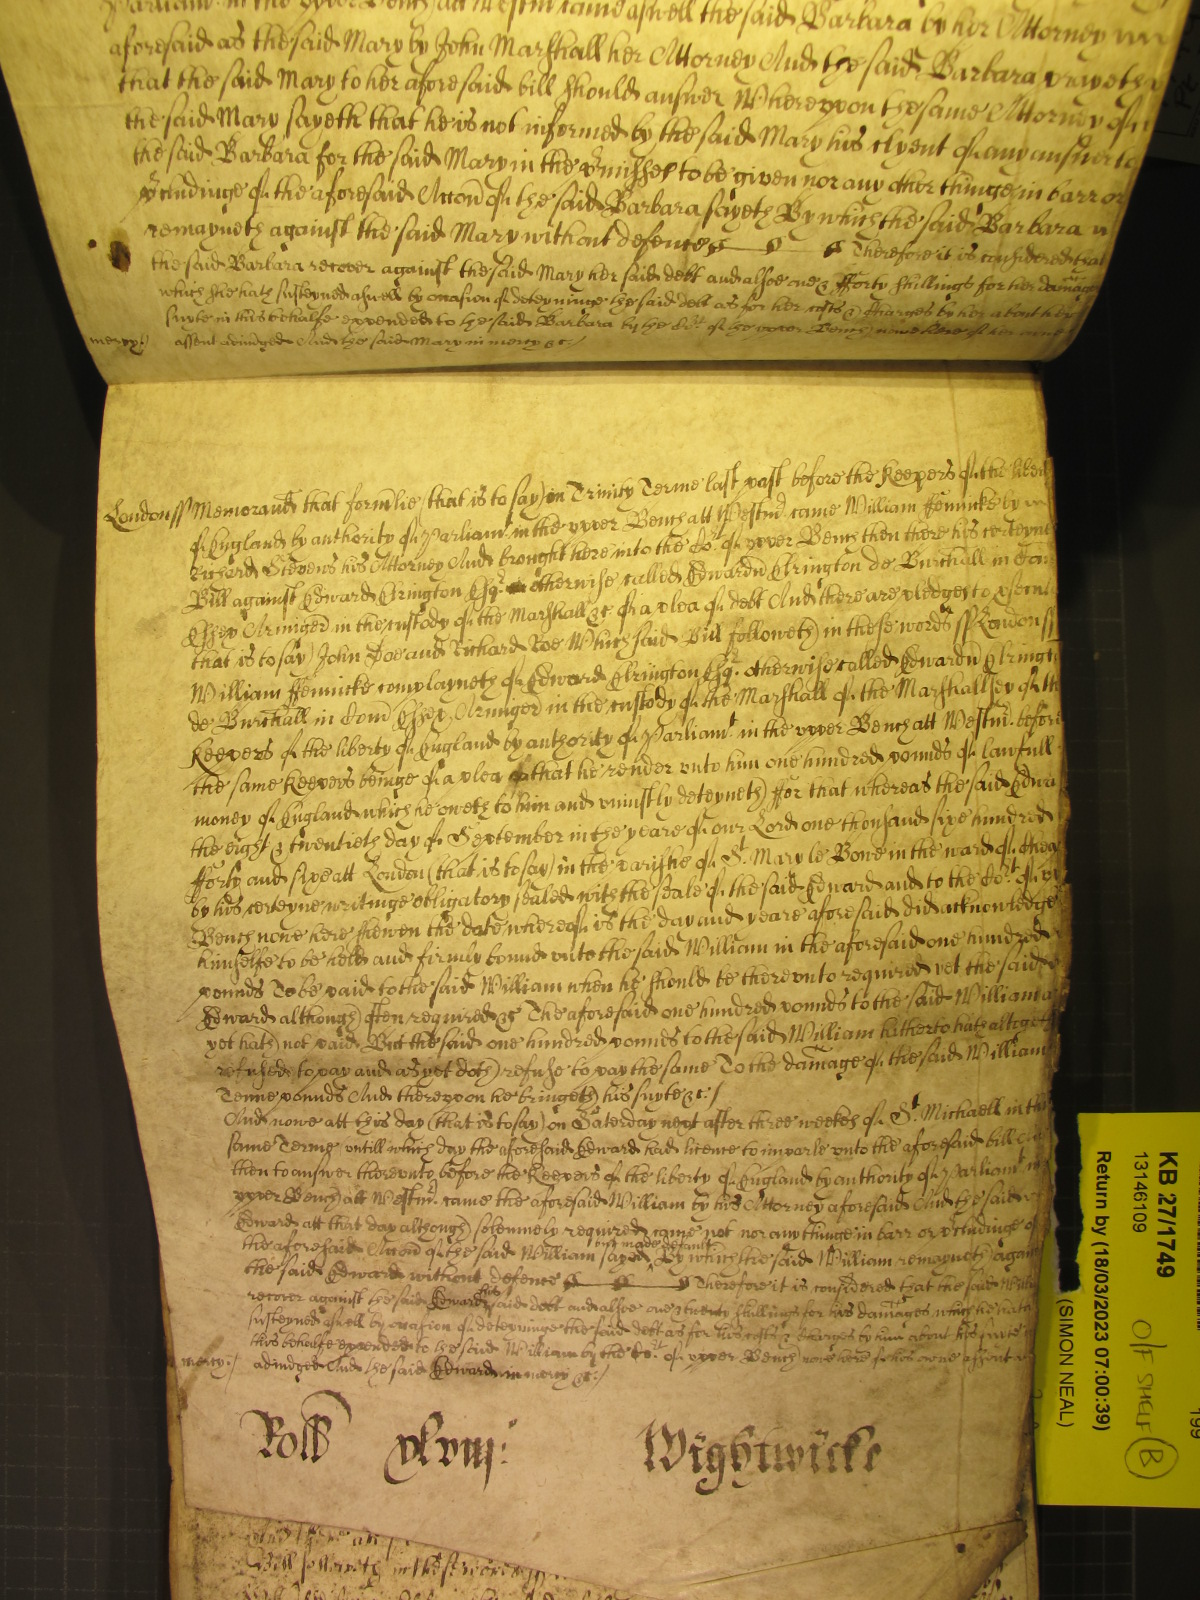 Parliamt. in the upper Bench att Westm came aswell the said Barbara by her Attorney
aforesaid as the said Mary by John Marshall her Attorney And the said Barbara prayeth
that the said Mary to her aforesaid bill should answer Whereupon the same Attorney of
the said Mary sayeth that he is not informed by the said Mary his clyent of any answer to
the said Barbara for the said Mary in the pmisses to be given nor any other thinge in barr or
pcludinge of the aforesaid Accon of the said Barbara sayeth By which the said Barbara
remayneth against the said Mary without defence Therefore it is considered that
the said Barbara recover against the said Mary her said debt and alsoe one & fforty shillings for her damages
which she hath susteyned aswell by occasion of deteyninge the said debt as for her costs & charges by her about her
suyte in this behalfe expended to the said Barbara by the Cort. of the upper Bench nowe here of her owne
mercy:/ assent adiudged And the said Mary in mercy &c:/
London ss Memorand that formlie (that is to say) in Trinity Terme last past before the Keepers of the libty
of England by authority of Parliamt. in the upper Bench att Westmr. came William ffennicke by
Richard Stevens his Attorney And brought here into the Cort. of upper Bench then there his certeyne
Bill against Edward Elrington Esqr. otherwise called Edwardu Elrington de Burchall in Com
Essex Armiger in the custody of the Marshall &c of a plea of debt And there are pledges to psecute
that is to say) John Doe and Richard Roe Which said Bill followeth) in these words ss London ss
William ffennicke complayneth of Edward Elrington Esqr. otherwise called Edwardu Elringt
de Burchall in Com Essex Armiger in the custody of the Marshall of the Marshallsey of the
Keepers of the liberty of England by authority of Parliamt. in the upper Bench att Westmr. before
the same Keepers beinge of a plea that he render unto him one hundred pounds of lawfull
money of England which he oweth to him and uniustly deteyneth) ffor that whereas the said Edwa
the eight & twentieth day of September in the yeare of our Lord one thousand sixe hundred
fforty and sixe att London (that is to say) in the parishe of St. Mary le Bowe in the ward of Cheap
by his certeyne writinge obligatory sealed with the Seale of the said Edward and to the Cort. of up
Bench nowe here shewen the date whereof is the day and yeare aforesaid did acknowledge
himselfe to be held and firmly bound unto the said William in the aforesaid one hundred
pounds To be paid to the said William when he should be thereunto required yet the said
Edward although) often required &c The aforesaid one hundred pounds to the said William
yet hath) not paid But the said one hundred pounds to the said William hitherto hath altogeth
refused to pay and as yet doth) refuse to pay the same To the damage of the said William
Tenne pounds And thereupon he bringeth) his suyte &c:/
And nowe att this day (that is to say) on Saterday next after three weekes of St. Michaell in this
same Terme untill which day the aforesaid Edward had licence to imparle unto the aforesaid bill And
then to answer thereunto before the Keepers of the liberty of England by authority of Parliamt. in
upper Bench att Westmr. came the aforesaid William by his Attorney aforesaid And the said
Edward att that day although) solemnely required came not nor any thinge in barr or pcludinge of
but made default
the aforesaid Accon of the said William sayed By which the said William remayneth again
the said Edward without defence Therefore it is considered that the said Willm
recover against the said Edward his said debt and alsoe one & twenty shillings for his damages which he hath
susteyned aswell by occasion of deteyninge the said debt as for his costs & charges by him about his suite in
this behalfe expended to the said William by the Cort. of upper Bench nowe here of his owne assent
mercy:/ adiudged And the said Edward in mercy &c:/
Roll xlviij: Wightwicke
Bill followeth in these words
KB 27/1749
13146109
Return by (18/03/2023 07:00:39)
(SIMON NEAL)
O/F SHELF B
199